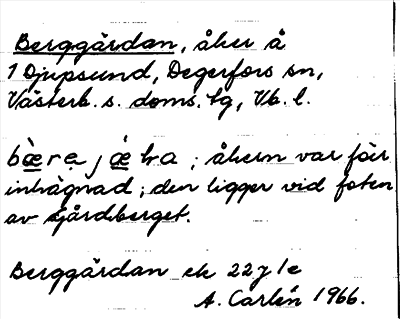 Berggärdan, åker å
1 Djupsund, Degerfors sn,
Västerb. s. doms. tg, Vb. l.
åkern var förr
inhägnad; den ligger vid foten
av Gårdberget.
Berggärdan ek 22 7 1 e
A. Carlén 1966.